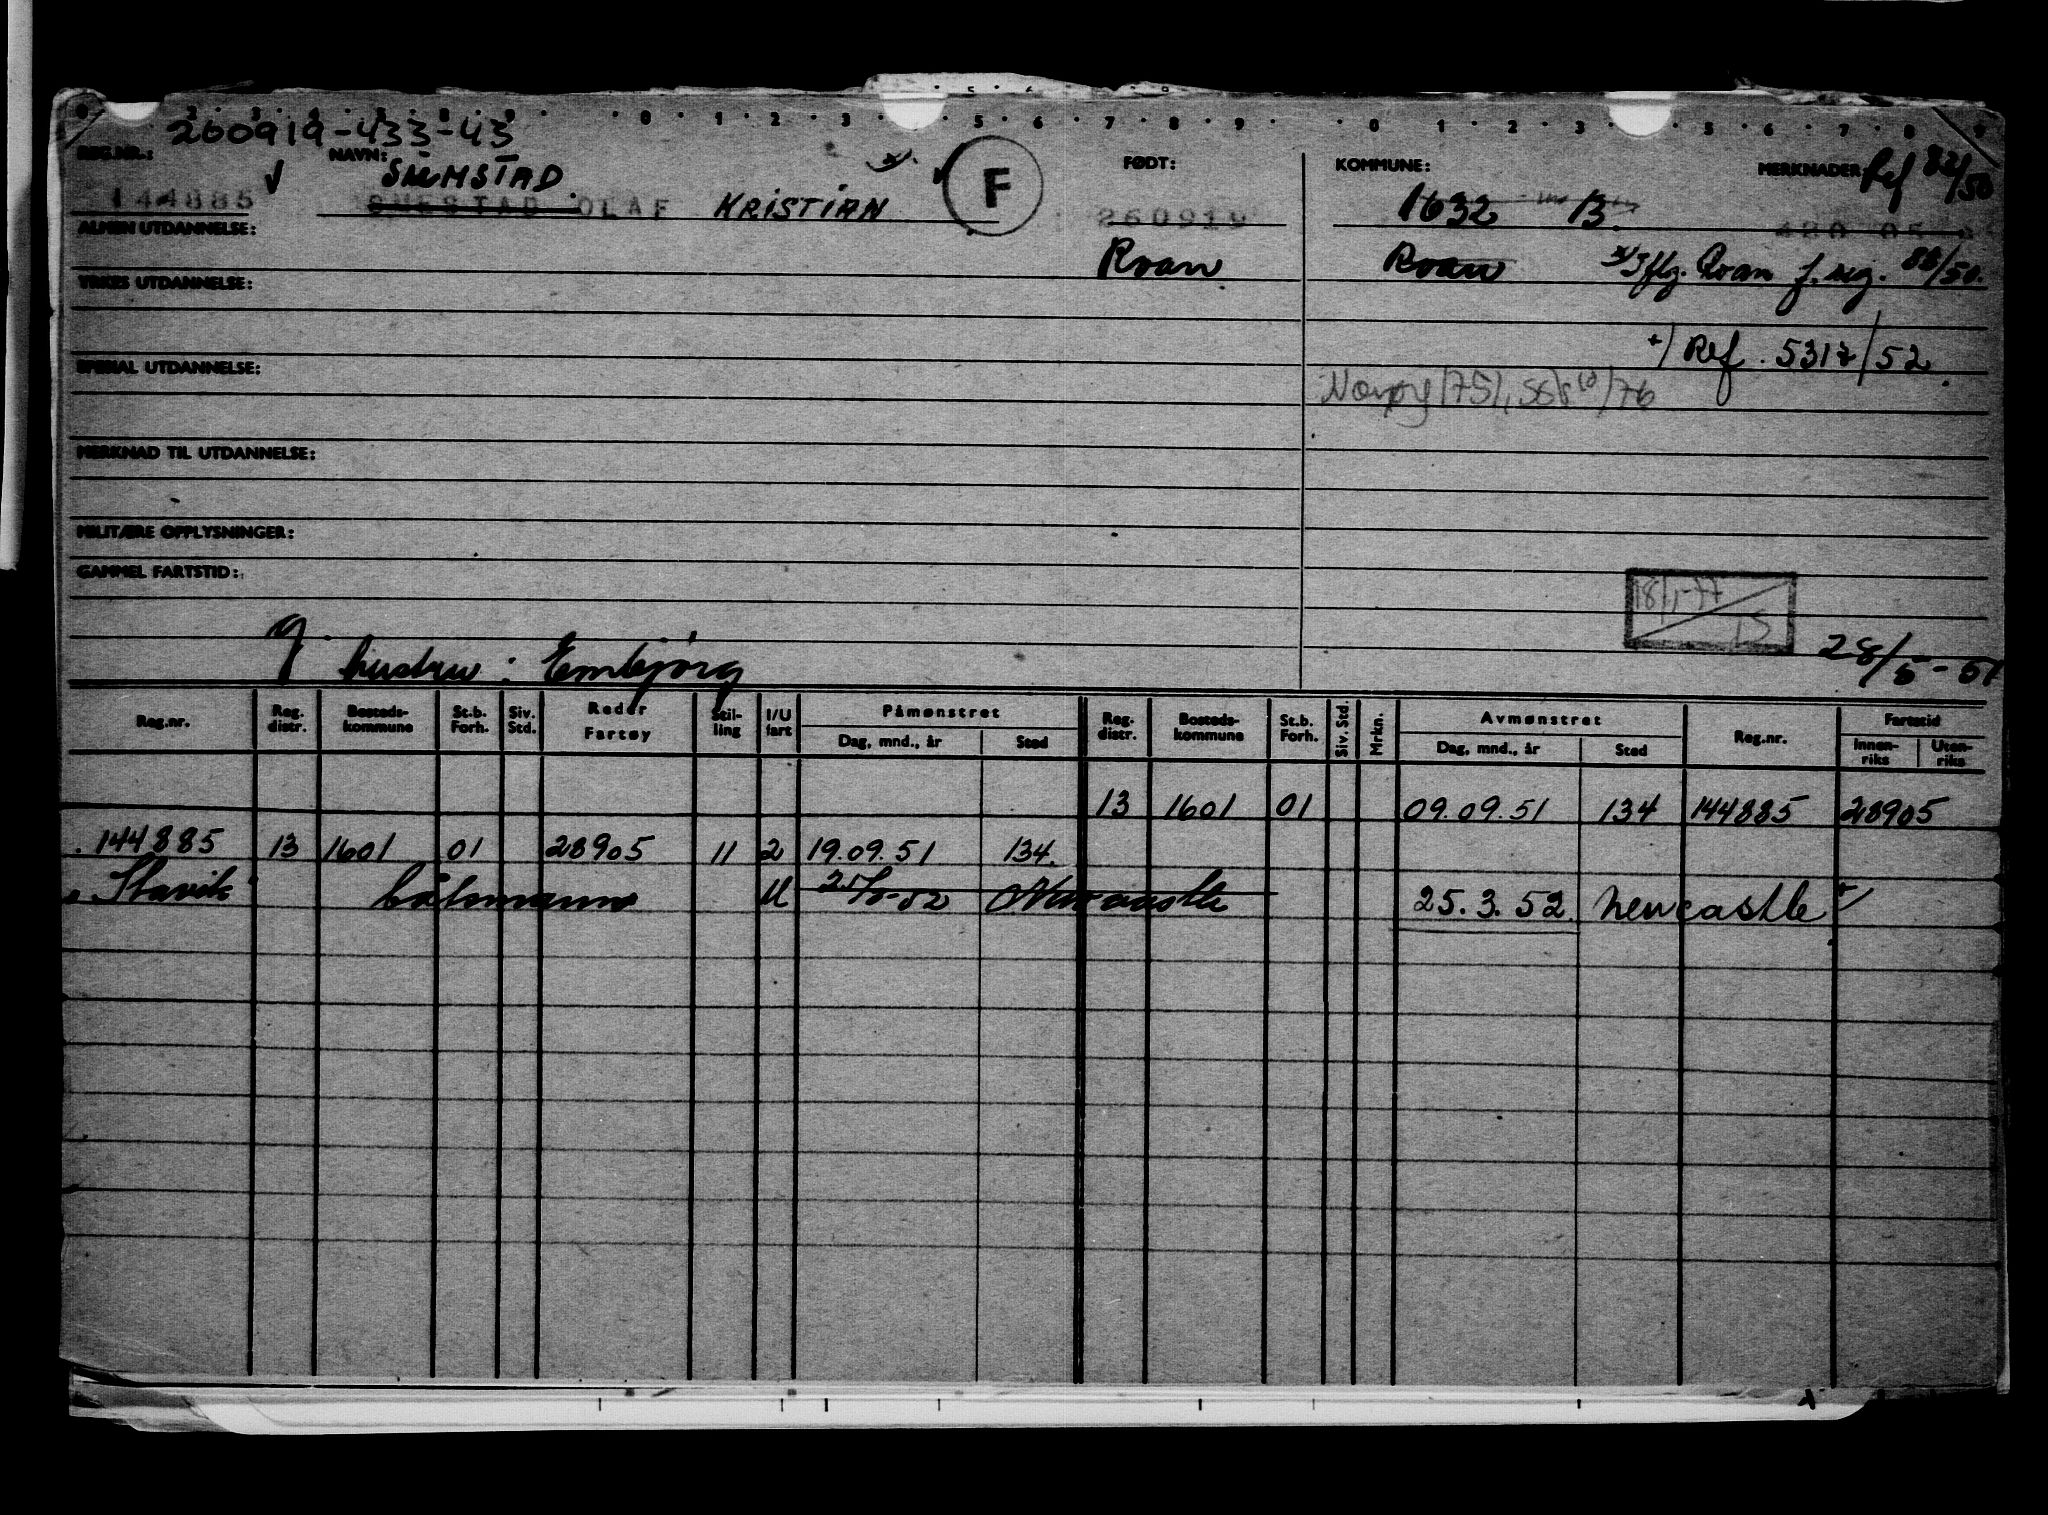 260919-433-43
REG.NR.: NAVN: FØDT: KOMMUNE: MERKNADER: Ref 82/50
SUMSTAD
144885 OLAF KRISTIAN F 260919 1632 13
ALMEN UTDANNELSE: Roan Roan Iflg. Roan f. reg. 86/50.
YRKES UTDANNELSE:
+) Ref. 5317/52.
SPESIAL UTDANNELSE:
MERKNAD TIL UTDANNELSE:
MILITÆRE OPPLYSNINGER:
GAMMEL FARTSTID:
18/1-77
15
g. hustru: Embjørg 28/5-51
Reg.nr. Reg. distr. Bosteds-kommune St.b. Forh. Siv. Std. Reder Fartøy Stil-ling I/U fart Påmønstret Dag, mnd., år Sted Reg. distr. Bosteds-kommune St.b. Forh. Siv. Std. Mrkn. Avmønstret Dag, mnd., år Sted Reg.nr. Fartstid Innen-riks Uten-riks
13 1601 01 09.09.51 134 144885 28905
144885 13 1601 01 28905 11 2 19.09.51 134
Stavik båtsmann U Newcastle 25.3.52 Newcastle +